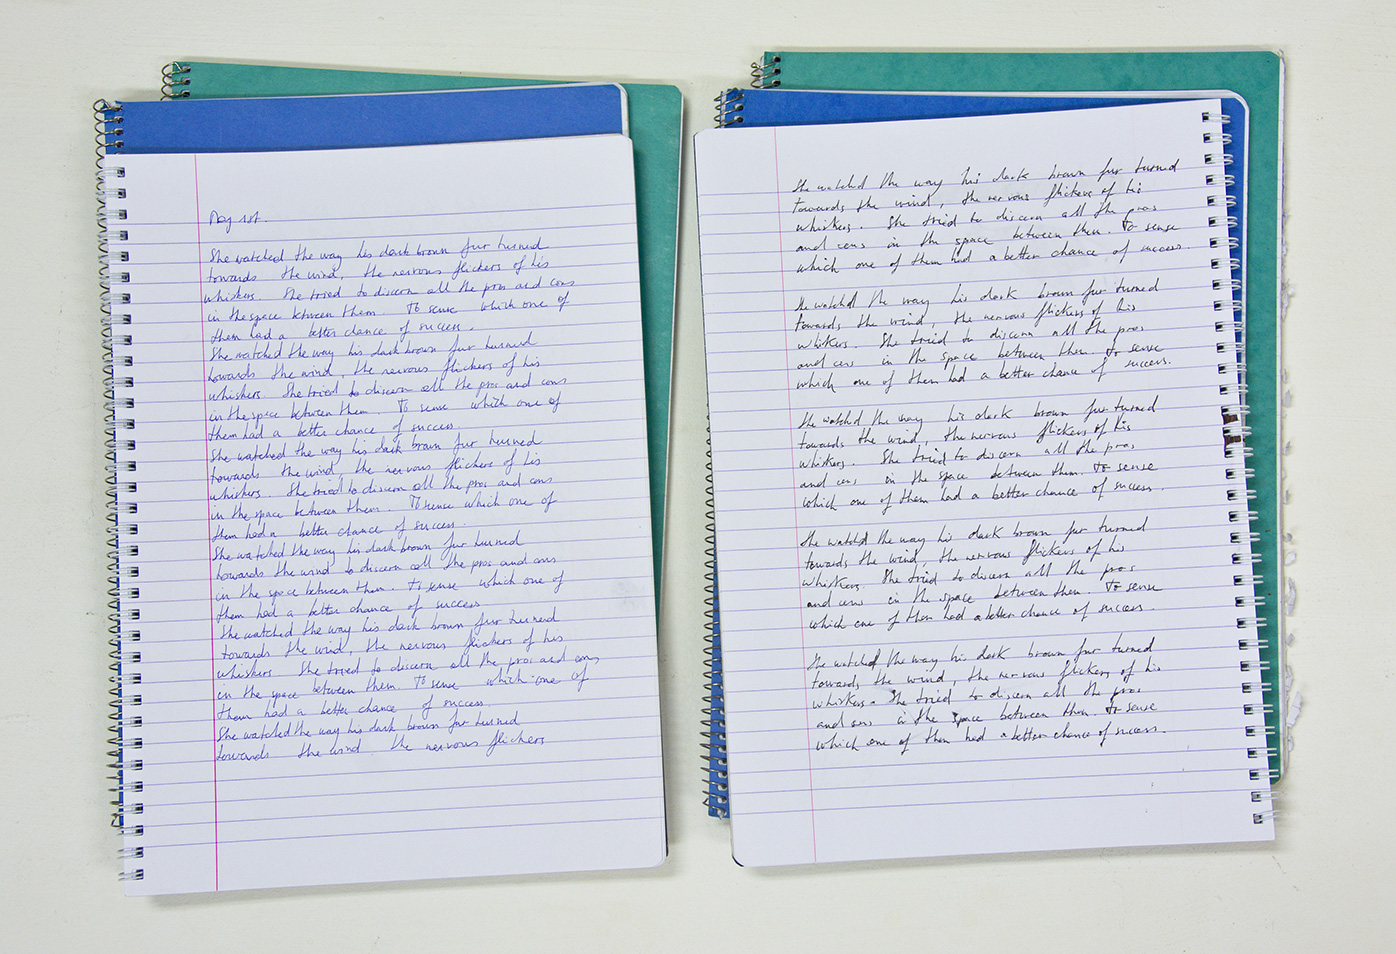 May 1st.
She watched the way his dark brown fur turned
towards the wind, the nervous flickers of his
whiskers. She tried to discern all the pros and cons
in the space between them. To sense which one of
them had a better chance of success.
She watched the way his dark brown fur turned
towards the wind, the nervous flickers of his
whiskers. She tried to discern all the pros and cons
in the space between them. To sense which one of
them had a better chance of success.
She watched the way his dark brown fur turned
towards the wind, the nervous flickers of his
whiskers. She tried to discern all the pros and cons
in the space between them. To sense which one of
them had a better chance of success.
She watched the way his dark brown fur turned
towards the wind to discern all the pros and cons
in the space between them. To sense which one of
them had a better chance of success
She watched the way his dark brown fur turned
towards the wind, the nervous flickers of his
whiskers She tried to discern all the pros and cons
in the space between them. To sense which one of
them had a better chance of success.
She watched the way his dark brown fur turned
towards the wind the nervous flickers
She watched the way his dark brown fur turned
towards the wind, the nervous flickers of his
whiskers. She tried to discern all the pros
and cons in the space between them. To sense
which one of them had a better chance of success.
She watched the way his dark brown fur turned
towards the wind, the nervous flickers of his
whiskers. She tried to discern all the pros
and cons in the space between them. To sense
which one of them had a better chance of success.
She watched the way his dark brown fur turned
towards the wind, the nervous flickers of his
whiskers. She tried to discern all the pros
and cons in the space between them. To sense
which one of them had a better chance of success.
She watched the way his dark brown fur turned
towards the wind, the nervous flickers of his
whiskers. She tried to discern all the pros
and cons in the space between them. To sense
which one of them had a better chance of success.
She watched the way his dark brown fur turned
towards the wind, the nervous flickers of his
whiskers. She tried to discern all the pros
and cons in the space between them. To sense
which one of them had a better chance of success.